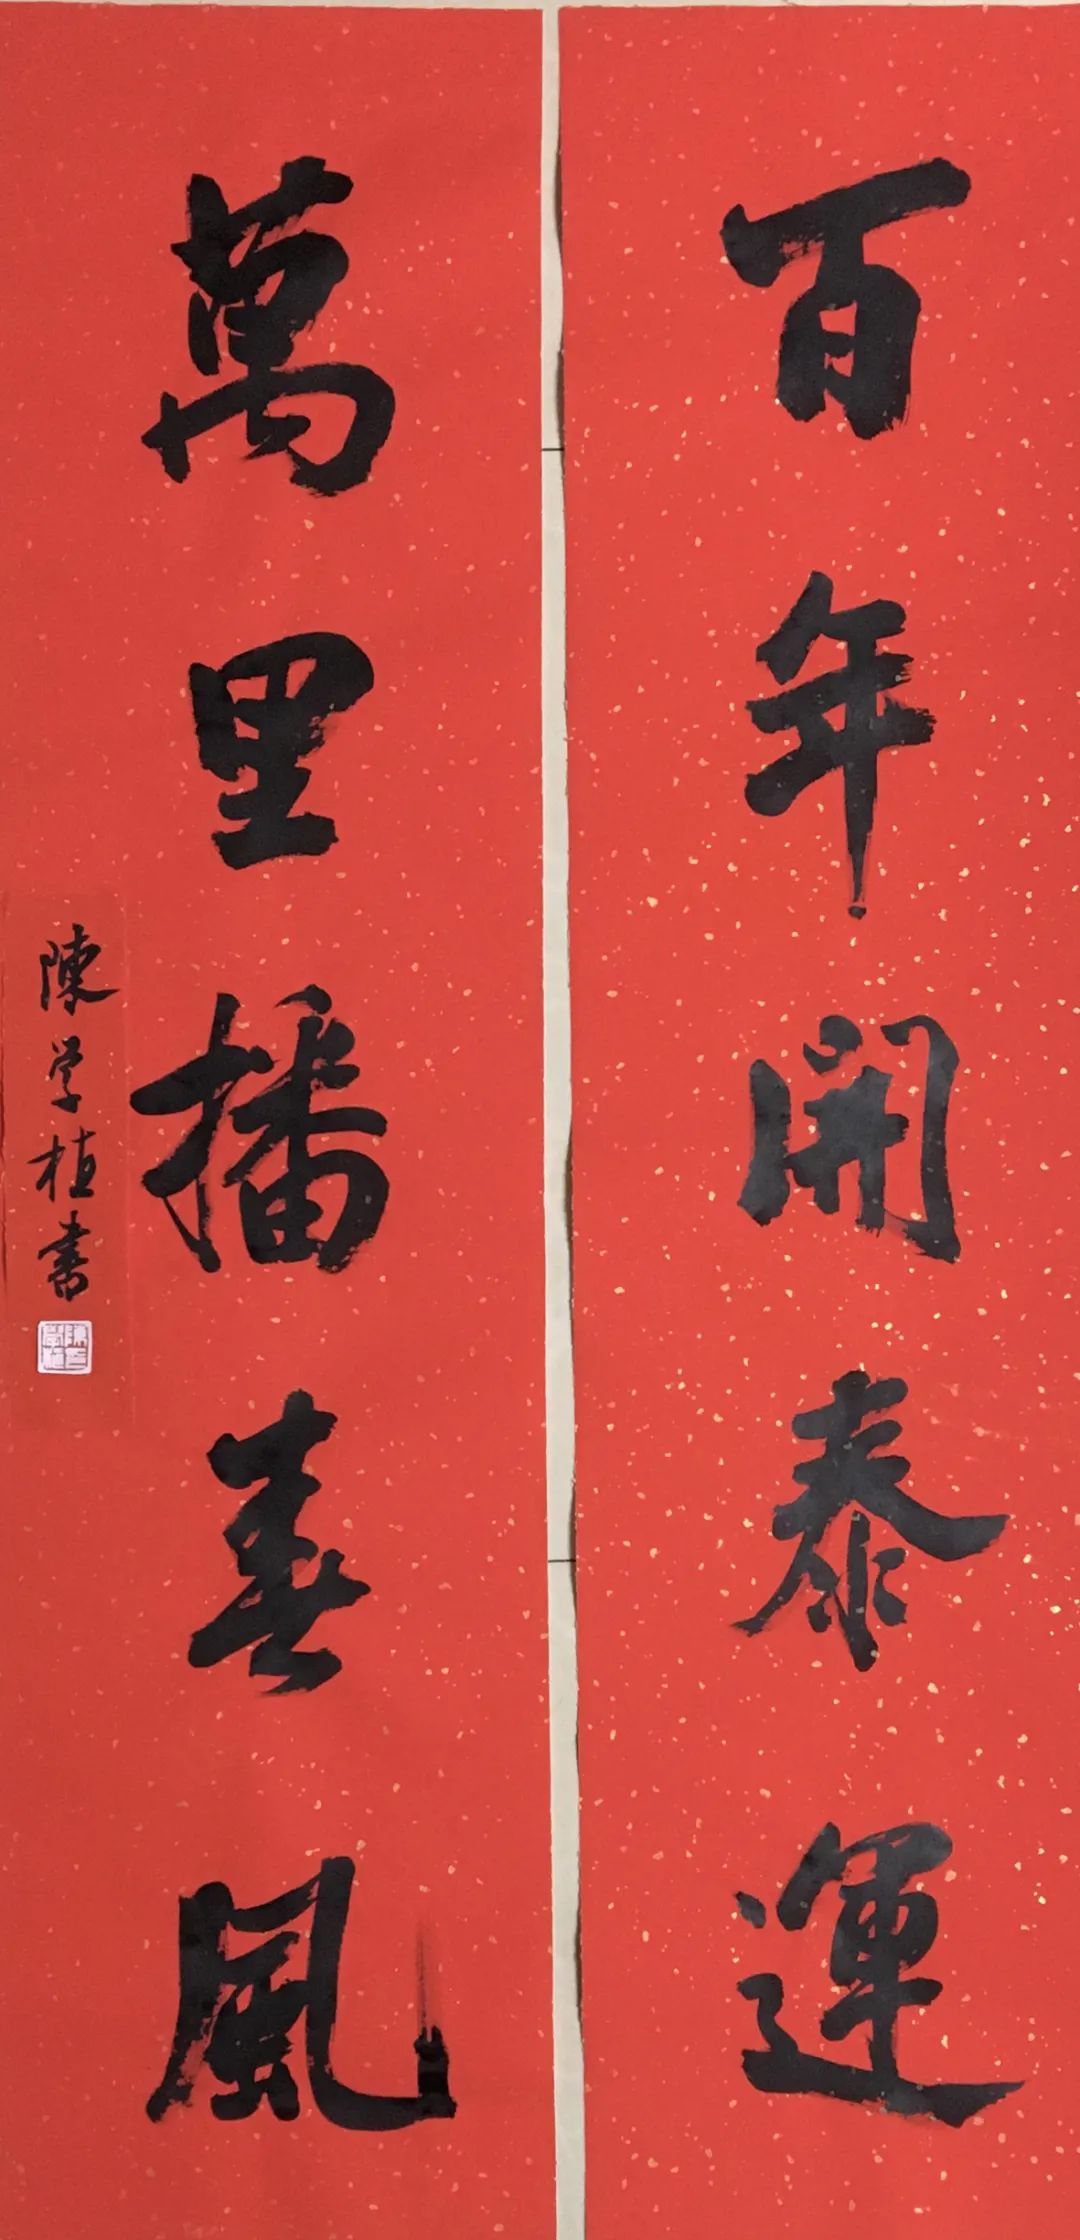 百年開泰運
萬里播春風
陳学植書